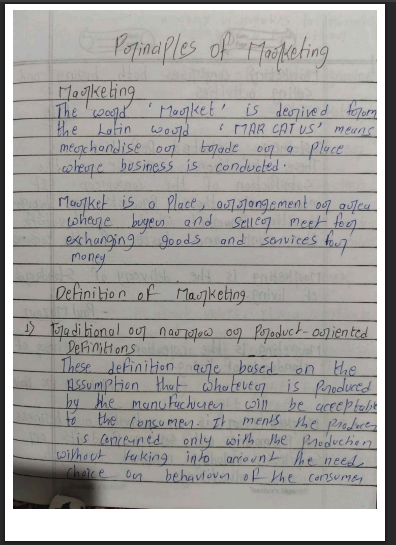 Principles of Marketing
Marketing
The word 'Market' is derived from
the Latin word 'MARCATUS' means
merchandise or trade or a place
where business is conducted.
Market is a Place, arrangement or area
where buyer and seller meet for
exchanging goods and services for
money
Definition of Marketing
1) Traditional or narrow or Product-oriented
Definitions
These definition are based on the
Assumption that whatever is Produced
by the manufacturer will be acceptable
to the consumer. It ments the Produce
is concerned only with the Production
without taking into account the need,
choice or behaviour of the consumer